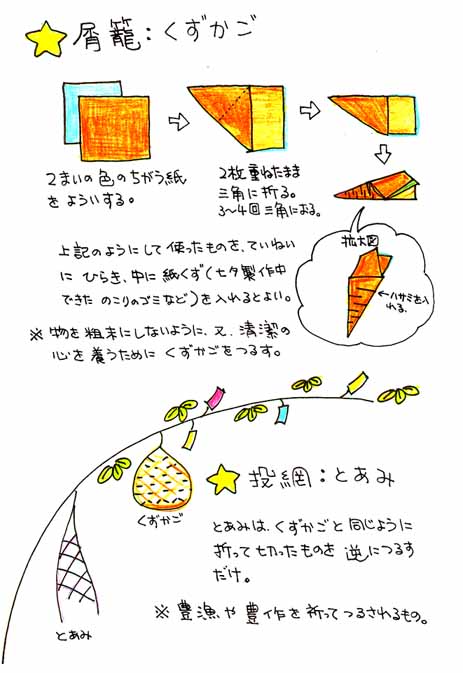 屑籠：くずかご
2まいの色のちがう紙
をよういする。
2枚重ねたまま
三角に折る。
3〜4回三角におる。
拡大図
←ハサミを入
れる。
上記のようにして使ったものを、ていねい
にひらき、中に紙くず(七夕製作中
できたのこりのゴミなど)を入れるとよい。
※物を粗末にしないように、又、清潔の
心を養うためにくずかごをつるす。
くずかご
とあみ
投網：とあみ
とあみは、くずかごと同じように
折って切ったものを逆につるす
だけ。
※豊漁や豊作を祈ってつるされるもの。